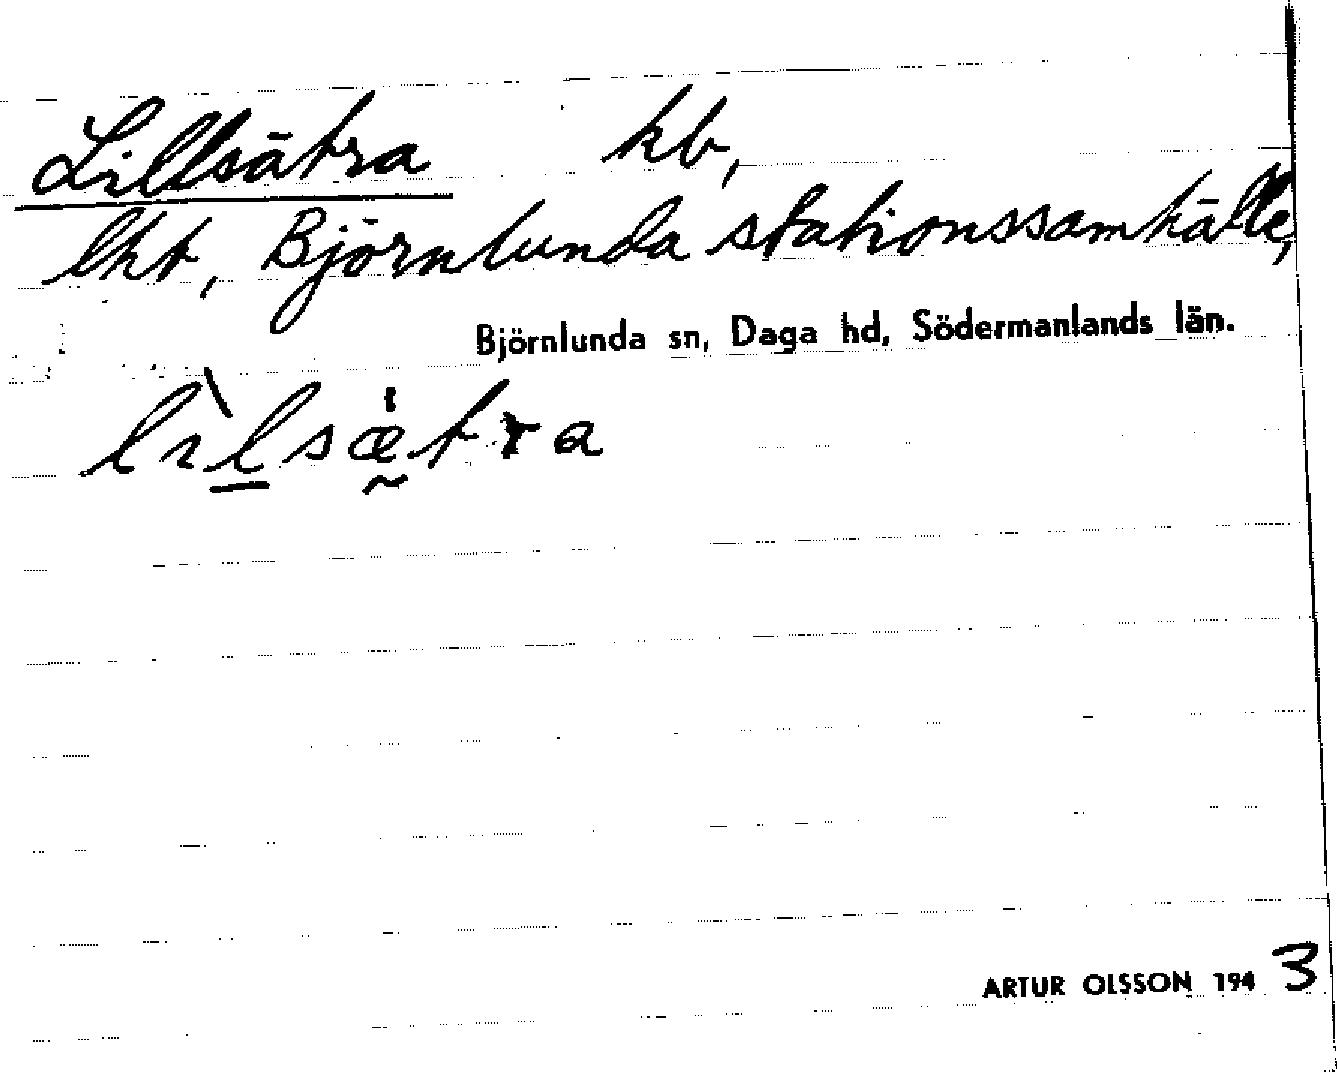 Lillsätra hb,
lht, Björnlunda stationssamhälle,
Björnlunda sn, Daga hd, Södermanlands län.
lɪ̀l̲sæ̰̍tra
ARTUR OLSSON 1943